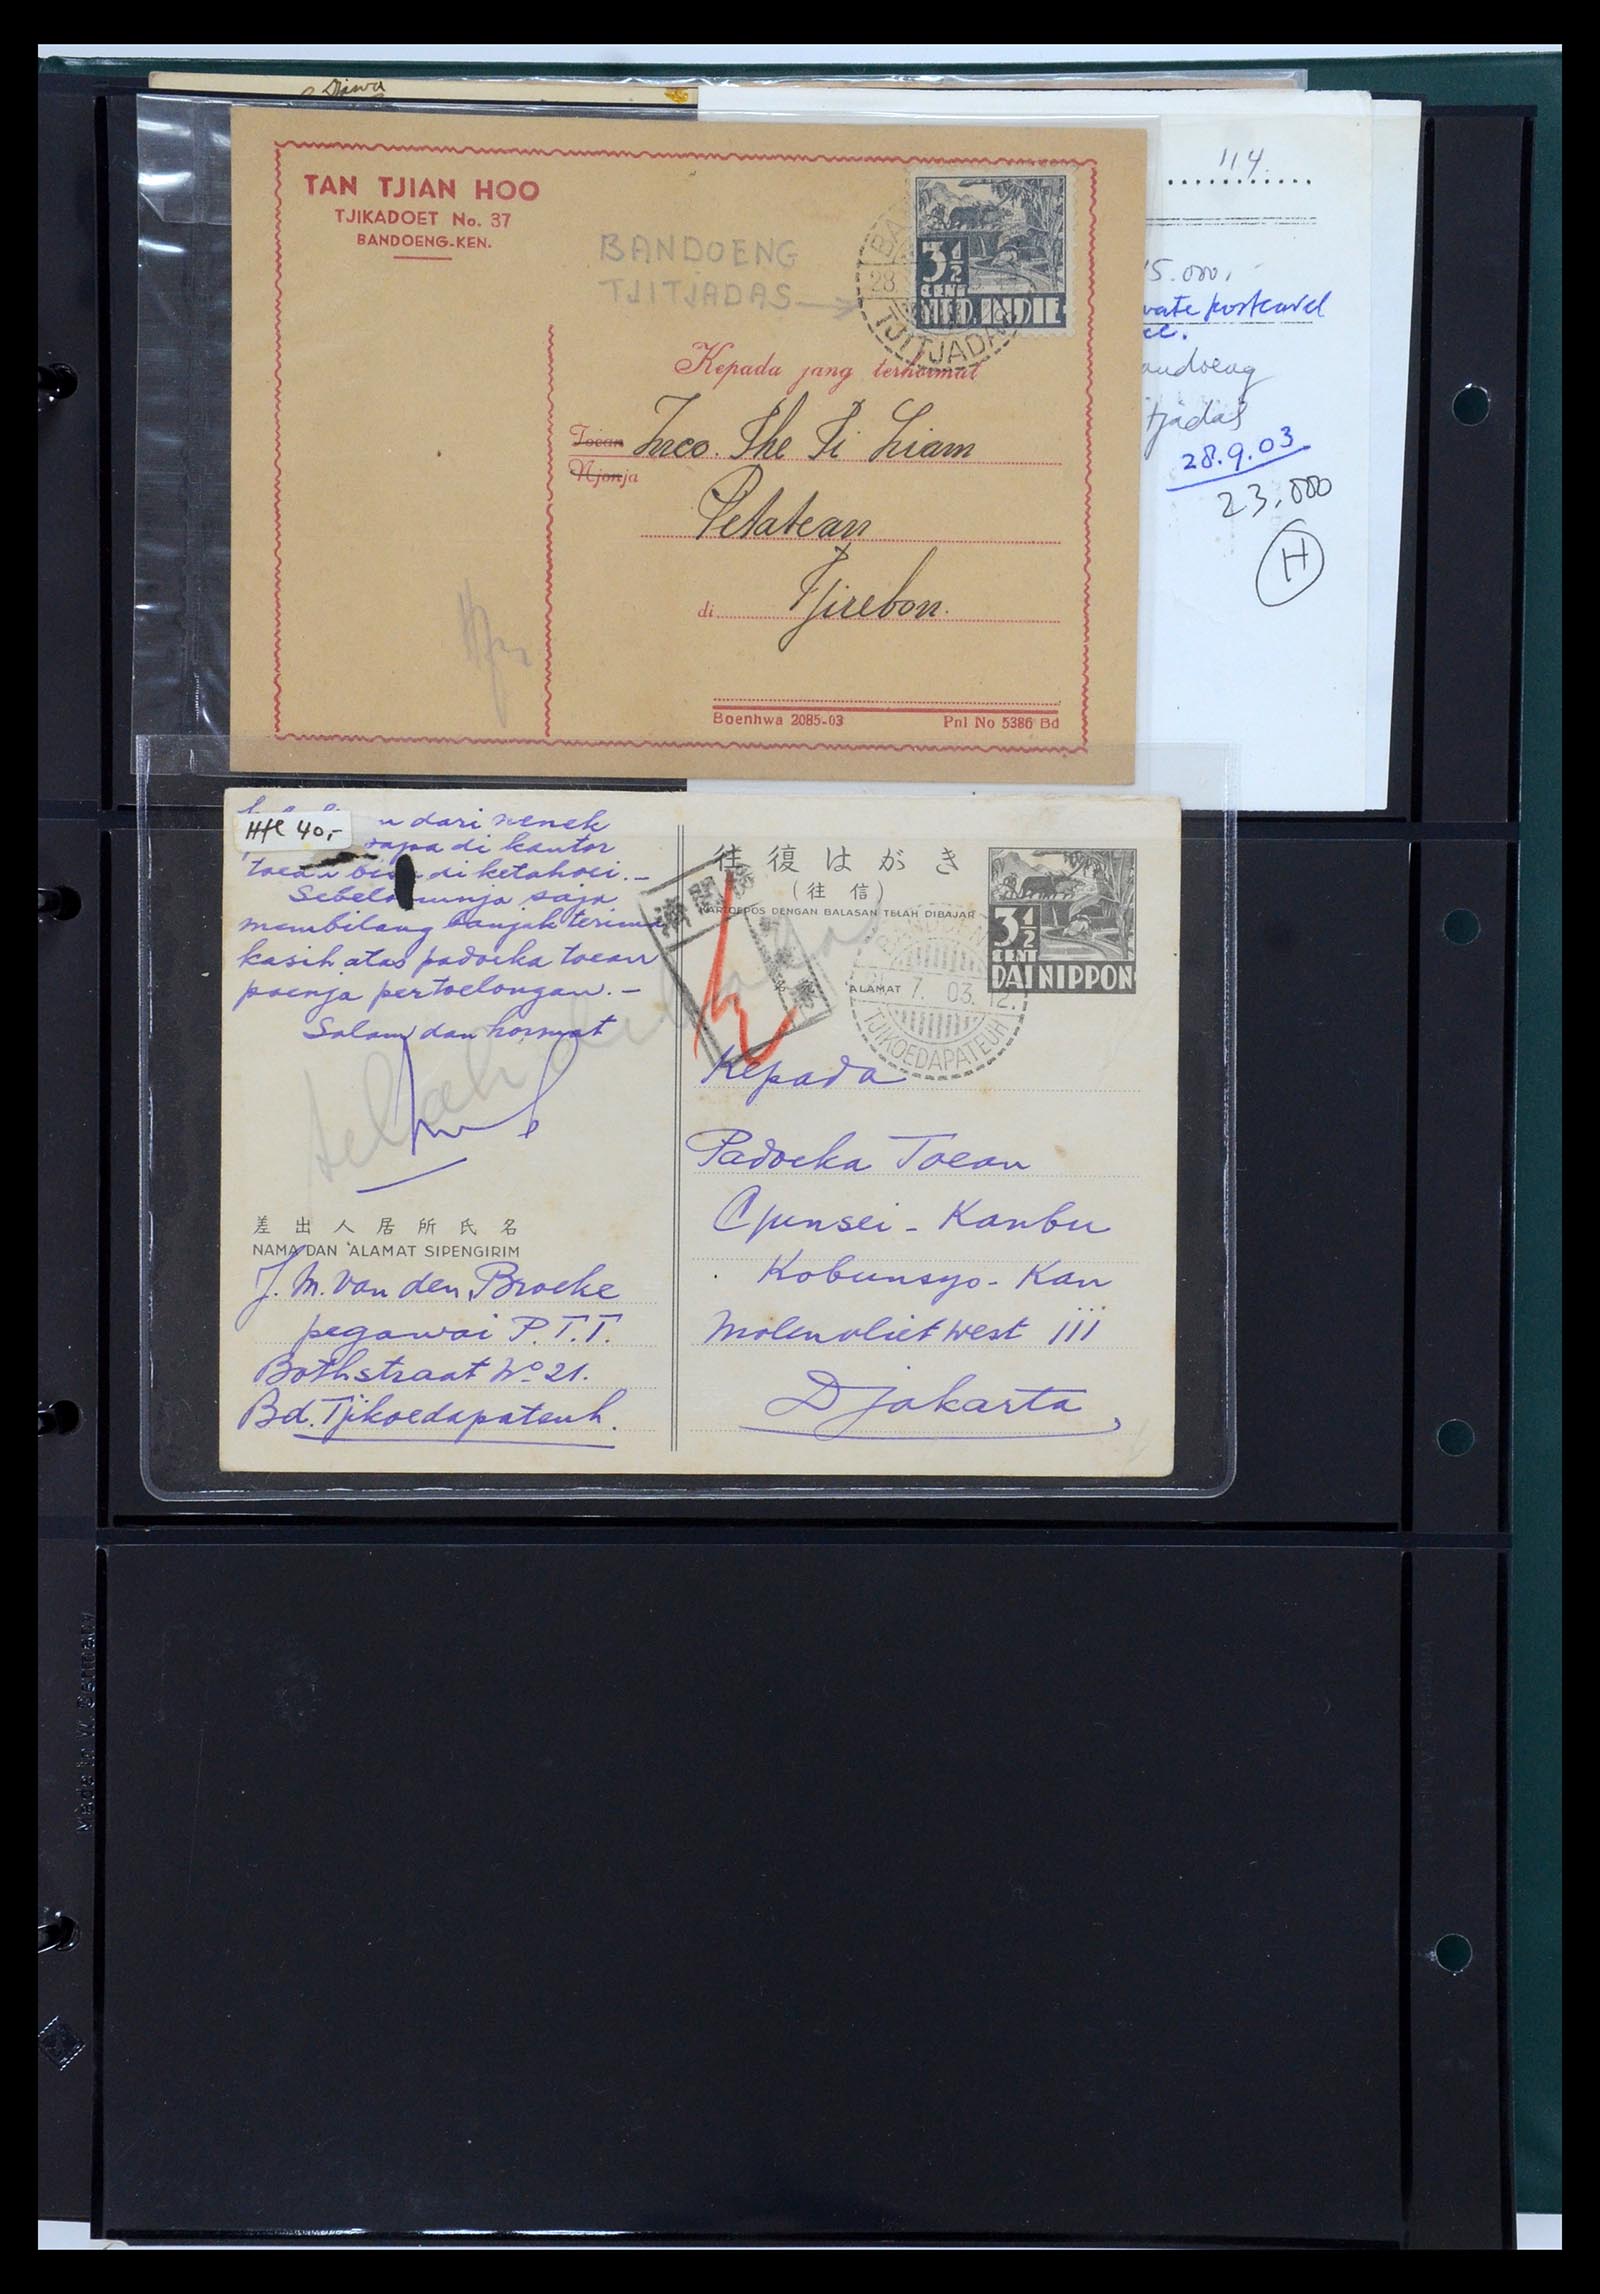 Djawa
114
15.000,-
vate postcard
andoeng
tjadas
28.9.03
23.000
H
TAN TJIAN HOO
TJIKADOET No. 37
BANDOENG-KEN.
BANDOENG
TJITJADAS
3½
CENT
NED. INDIE
28.
TJITJADAS
Kepada jang terhormat
Toean
Njonja
The Ti Liam
di Tjirebon.
Boenhwa 2085-03 Pnl No 5386 Bd
Hfl 40,-
dari nenek
di kantor
di ketahoei.-
saja
membilang banjak terima
kasih atas padoeka toean
poenja pertoelongan.-
Salam dan hormat
差出人居所氏名
NAMA DAN ALAMAT SIPENGIRIM
J. M. van den Broeke
pegawai P.T.T.
Bothstraat No 21.
Bd. Tjikoedapateuh.
往復はがき
(往信)
KARTOEPOS DENGAN BALASAN TELAH DIBAJAR
3½
CENT
DAI NIPPON
ALAMAT
7. 03. 12.
TJIKOEDAPATEUH
Kepada
Padoeka Toean
Gunsei-Kanbu
Kobunsyo-Kan
Molenvliet West 111
Djakarta